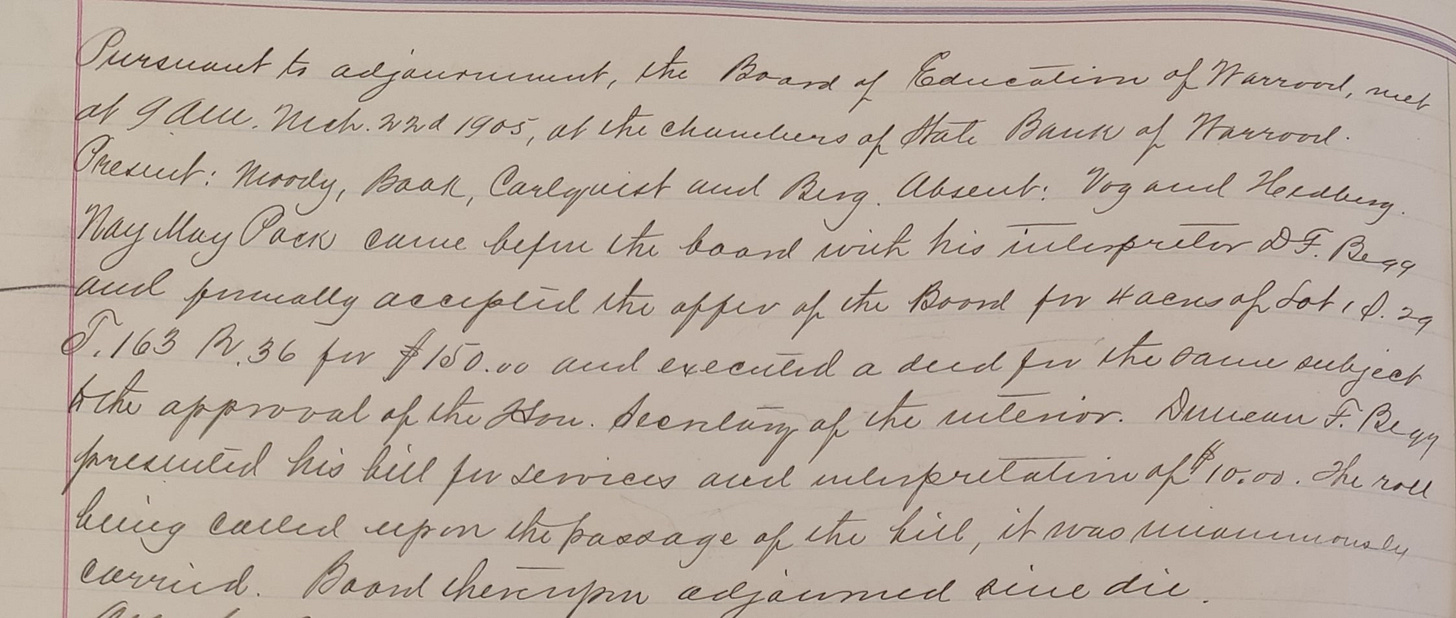 Pursuant to adjournment, the Board of Education of Warroad, met
at 9 a.m. Mch. 22d 1905, at the chambers of State Bank of Warroad.
Present: Moody, Baak, Carlquist and Berg. Absent: Vog and Hedberg.
Nay May Pock came before the board with his interpretor D F. Begg
and formally accepted the offer of the Board for 4 acres of Lot 1 S. 29
T. 163 R. 36 for $150.00 and executed a deed for the same subject
to the approval of the Hon. Secretary of the interior. Duncan F. Begg
presented his bill for services and interpretation of $10.00. The roll
being called upon the passage of the bill, it was unanimously
carried. Board thereupon adjourned sine die.